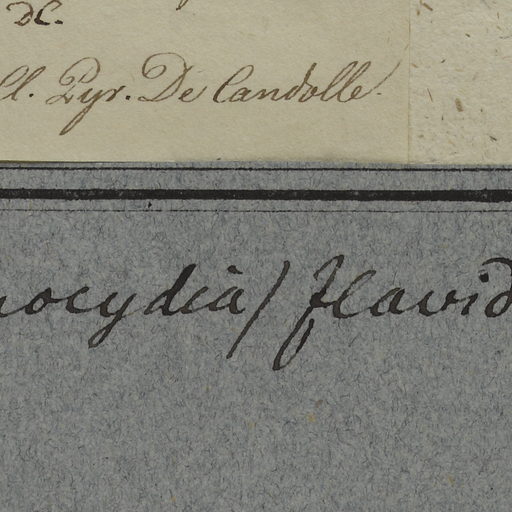 DC.
ll. Pyr. De Candolle.
nocydia/ flavid